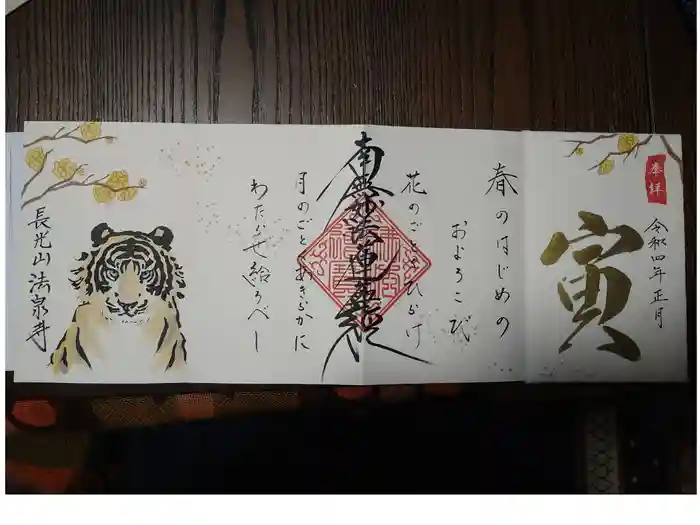 奉拝
令和四年正月
寅
春のはじめの
およろこび
花のごとくひらけ
南無妙法蓮華経
月のごとくあきらかに
わたらせ給うべし
長光山 法泉寺